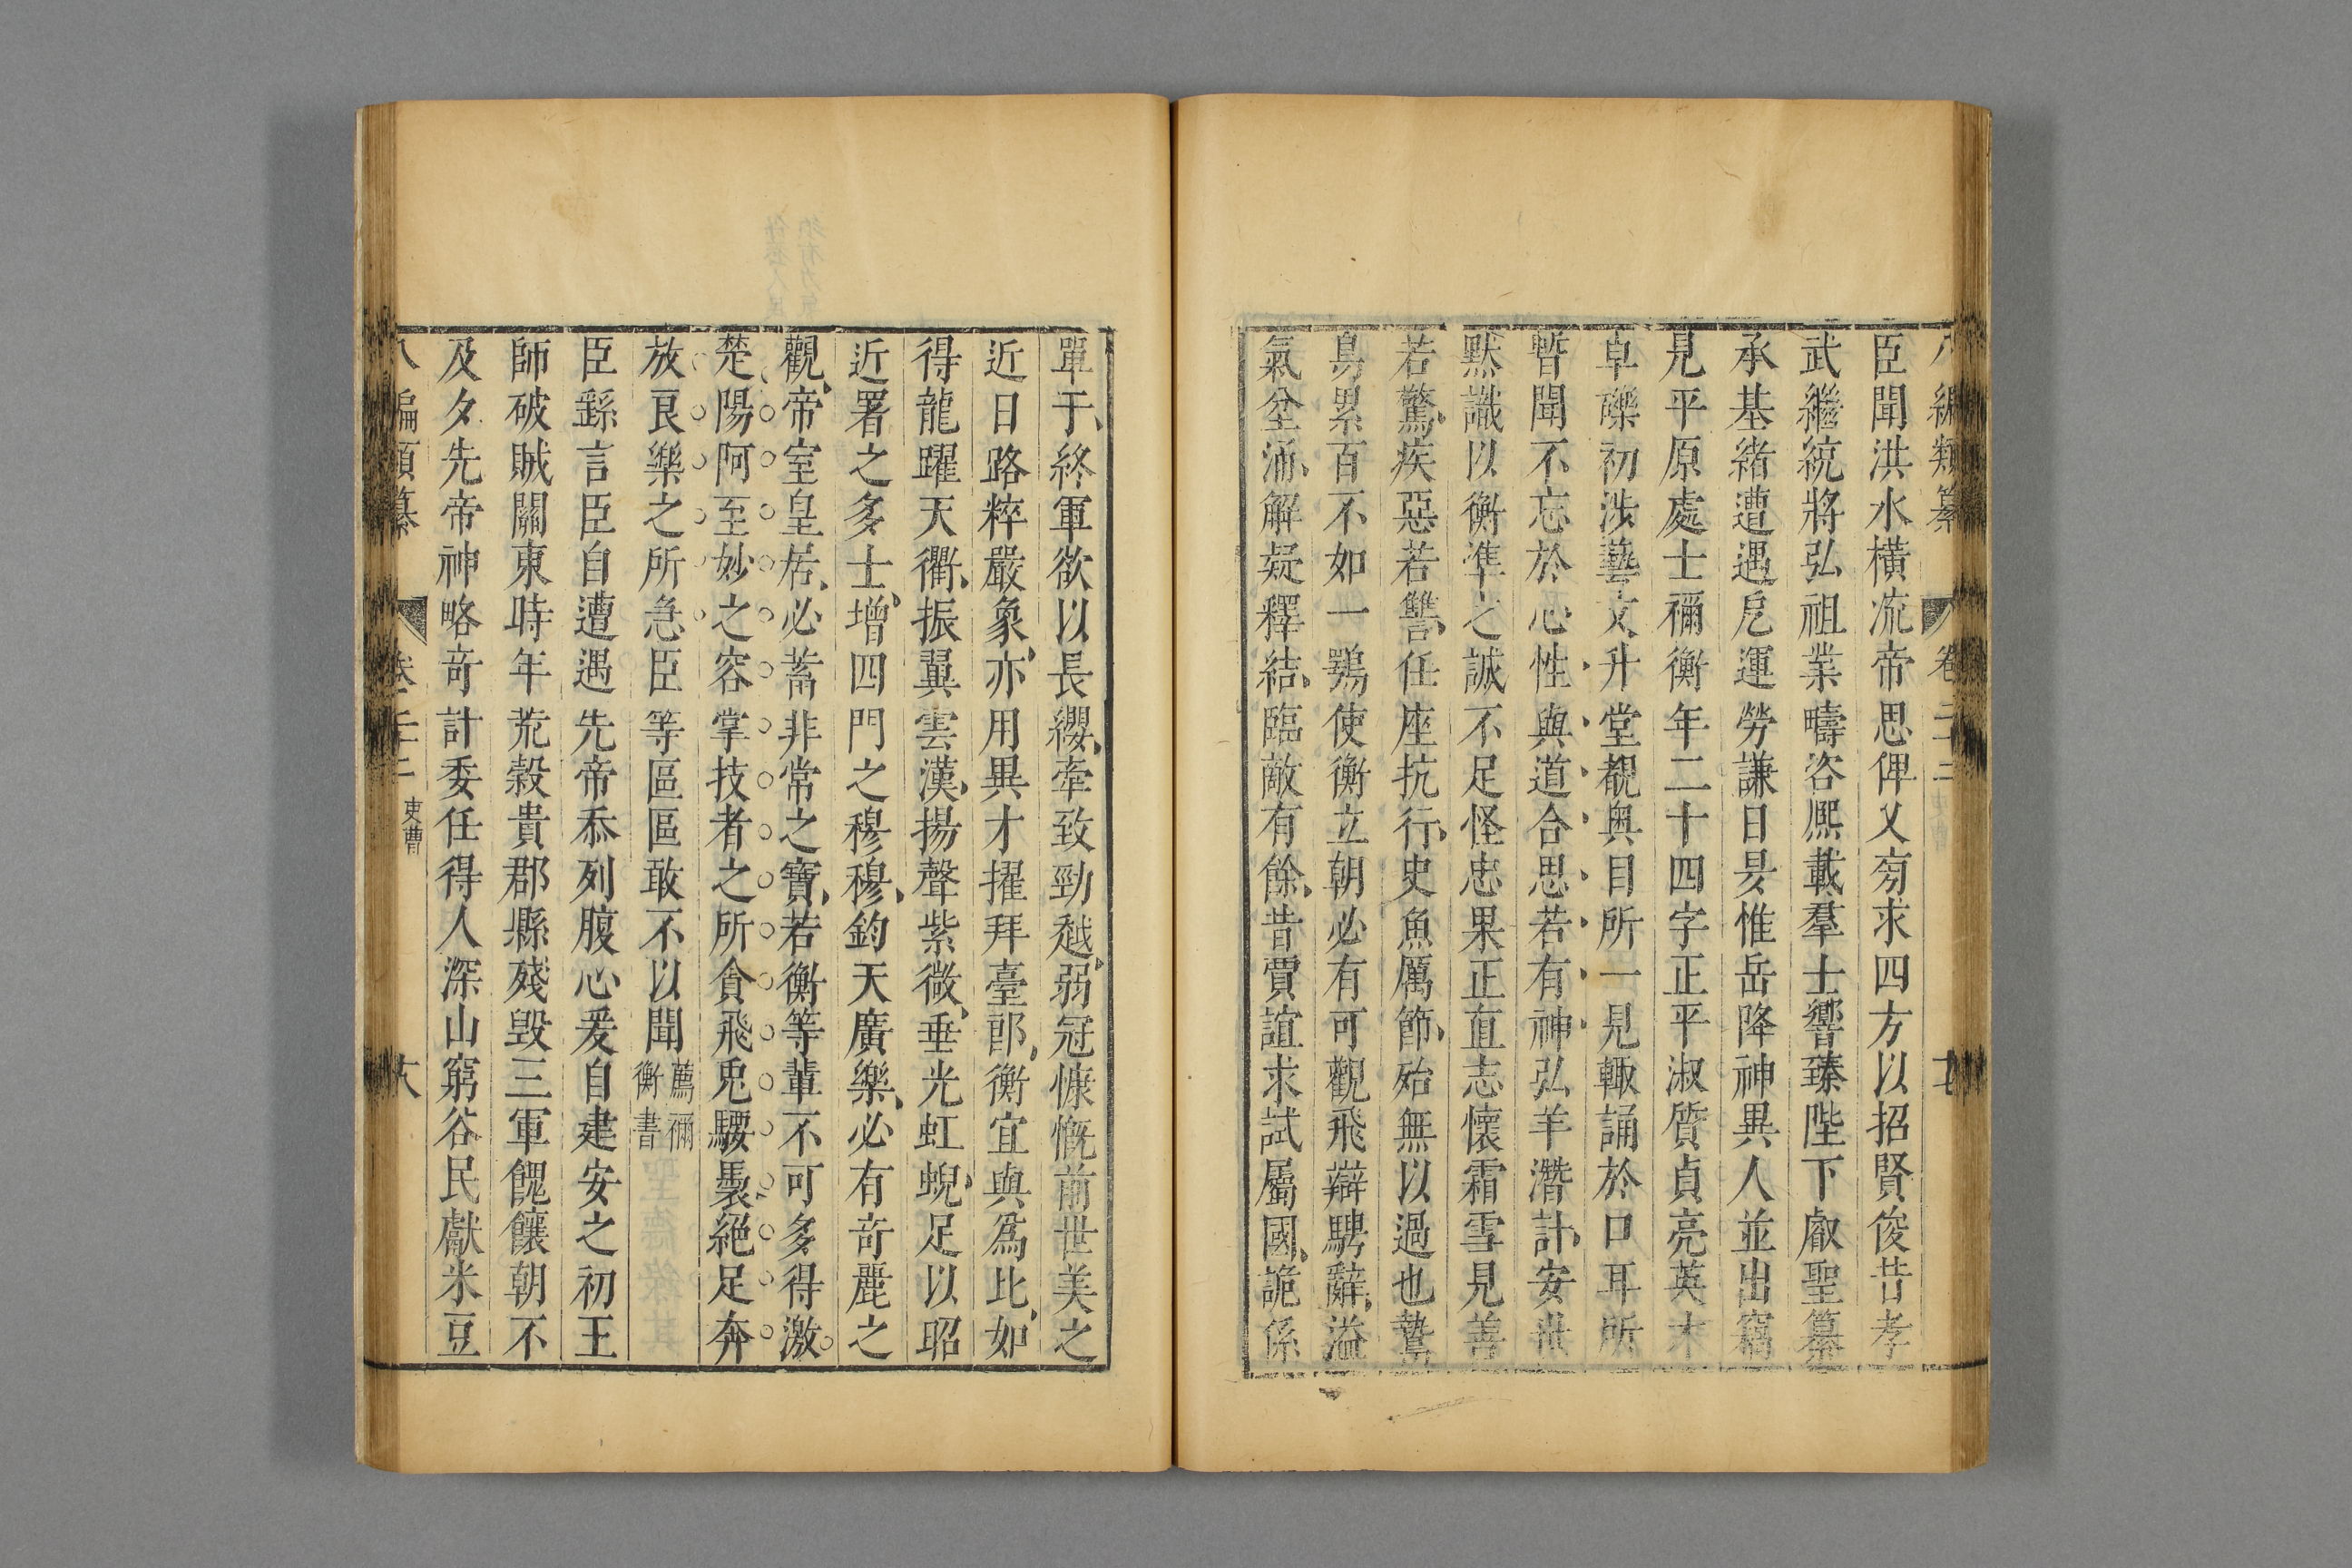 八編類纂 卷二十二 十七
臣聞洪水橫流帝思俾乂旁求四方以招賢俊昔孝
武繼統將弘祖業疇咨熙載羣士響臻陛下叡聖纂
承基緒遭遇戹運勞謙日昃惟岳降神異人並出竊
見平原處士禰衡年二十四字正平淑質貞亮英才
卓礫初涉藝文升堂覩奧目所一見輙誦於口耳所
暫聞不忘於心性與道合思若有神弘羊潛計安世
默識以衡準之誠不足怪忠果正直志懷霜雪見善
若驚疾惡若讐任座抗行史魚厲節殆無以過也鷙
鳥累百不如一鶚使衡立朝必有可觀飛辯騁辭溢
氣坌涌解疑釋結臨敵有餘昔賈誼求試屬國詭係
單于終軍欲以長纓牽致勁越弱冠慷慨前世美之
近日路粹嚴象亦用異才擢拜臺郎衡宜與爲比如
得龍躍天衢振翼雲漢揚聲紫微垂光虹蜺足以昭
近署之多士增四門之穆穆鈞天廣樂必有奇麗之
觀帝室皇居必蓄非常之寶若衡等輩不可多得激
楚陽阿至妙之容掌技者之所貪飛兎騕褭絕足奔
放良樂之所急臣等區區敢不以聞薦禰衡書
臣繇言臣自遭遇先帝忝列腹心爰自建安之初王
師破賊關東時年荒榖貴郡縣殘毀三軍餽饟朝不
及夕先帝神略奇計委任得人深山窮谷民獻米豆
八編類纂 卷二十二 吏曹 十八